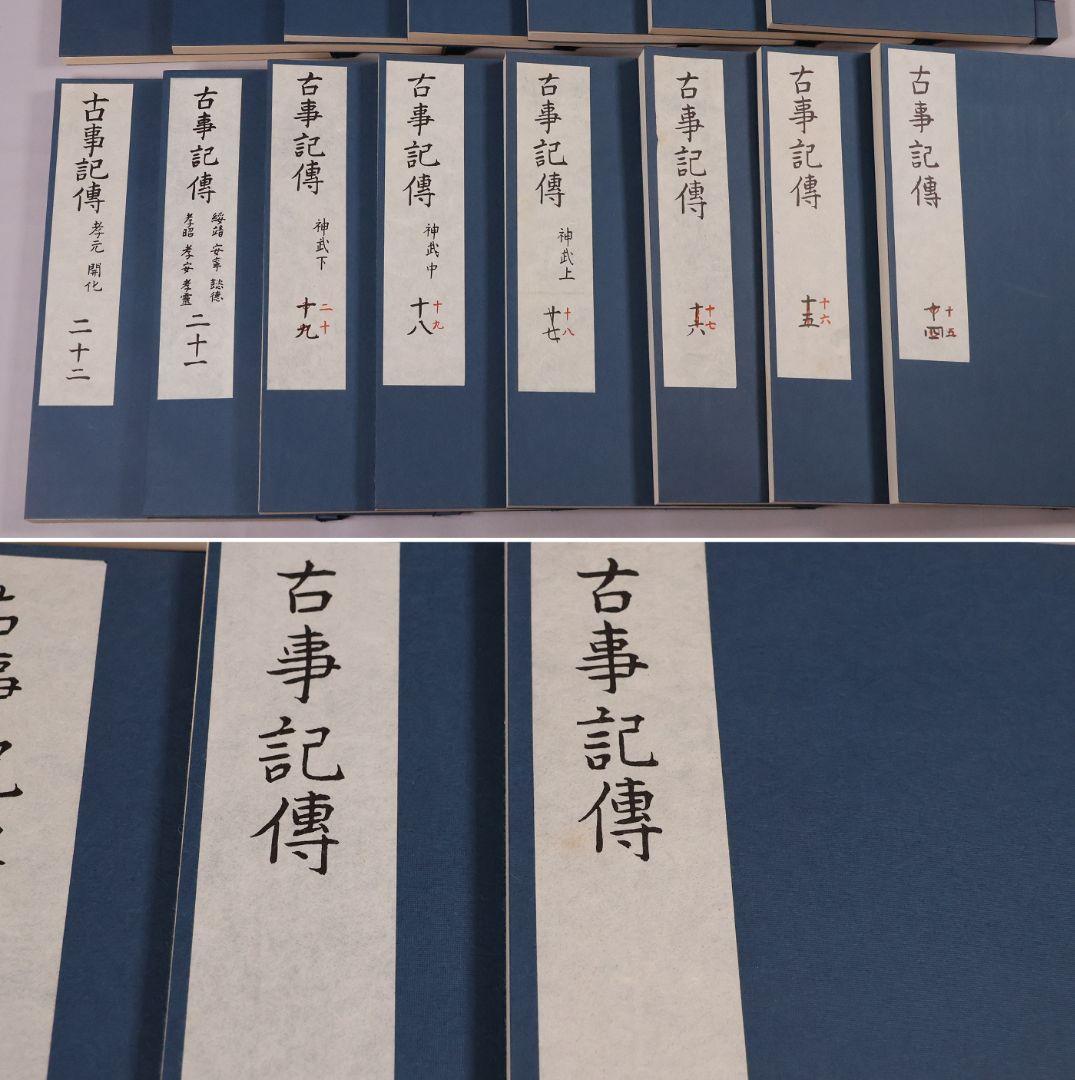 古事記傳
十四
十五
古事記傳
十五
十六
古事記傳
十六
十七
古事記傳
神武上
十七
十八
古事記傳
神武中
十八
十九
古事記傳
神武下
十九
二十
古事記傳
綏靖 安寧 懿德
孝昭 孝安 孝靈
二十一
古事記傳
孝元 開化
二十二
古事記傳
古事記傳